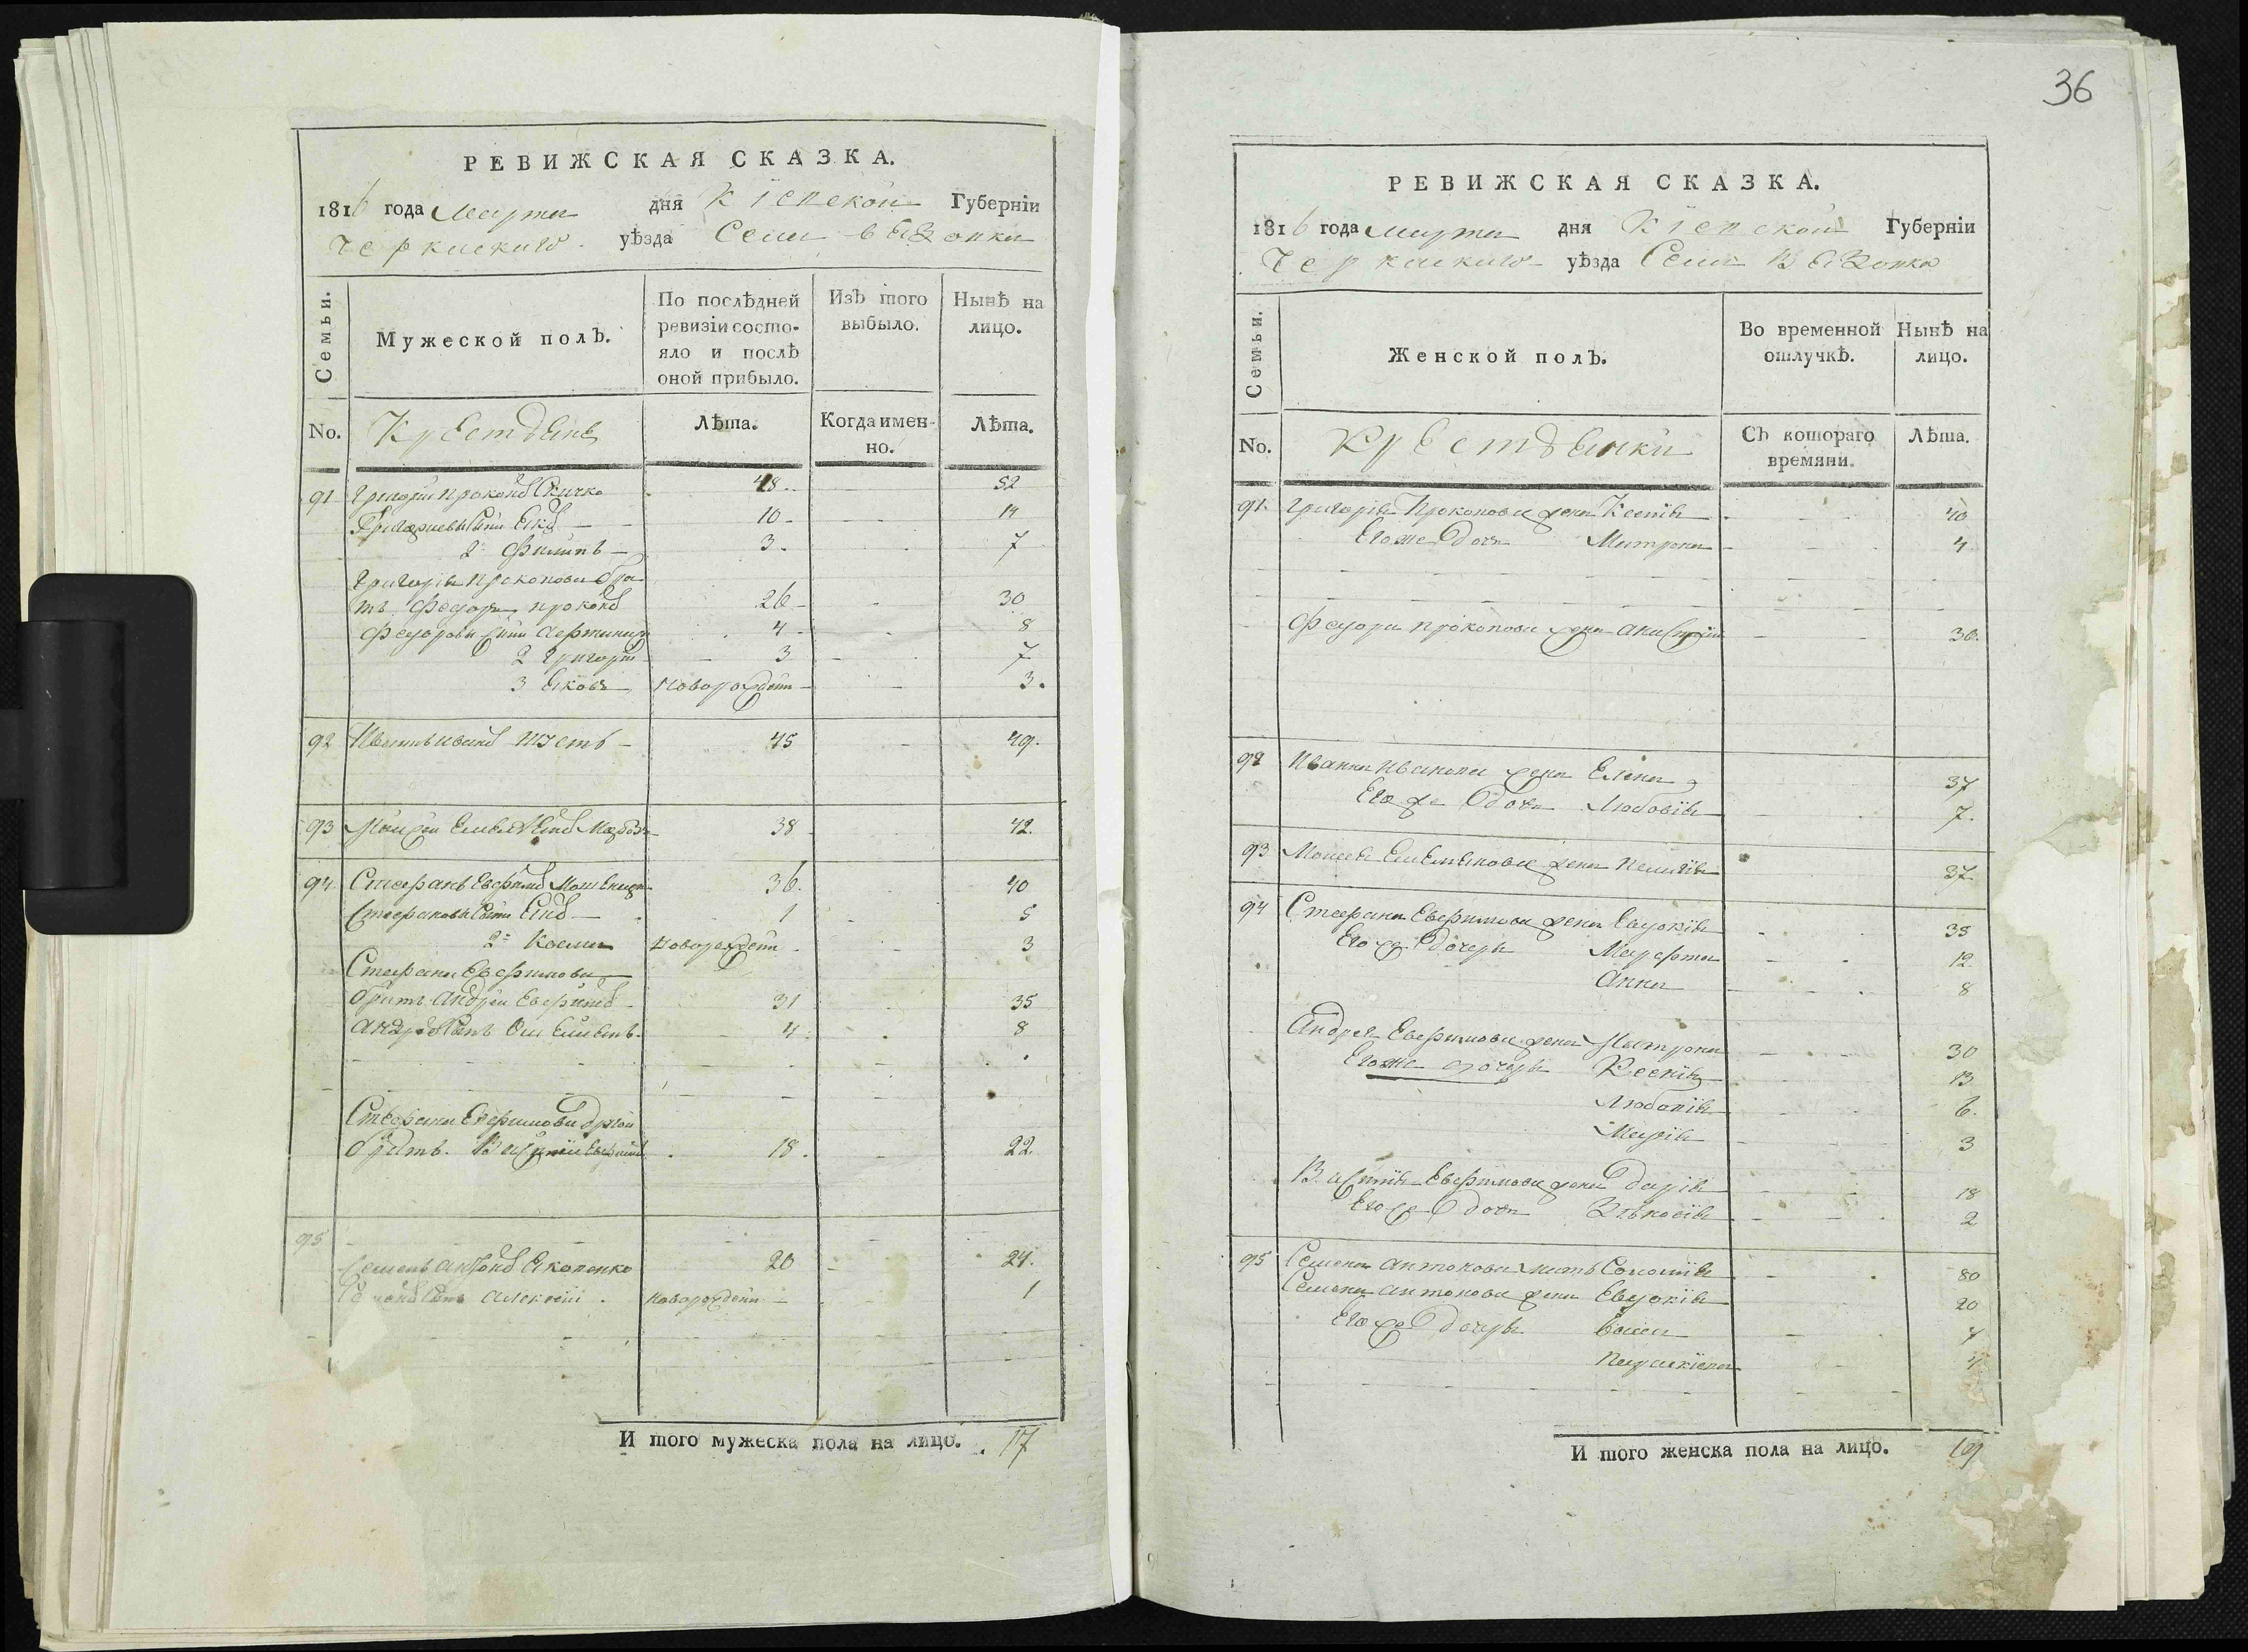 РЕВИЖСКАЯ СКАЗКА.
1816 года марта дня Кіевской Губерніи
Черкаскаго уѣзда Села Вязовка
Семьи.
Мужеской полъ.
По послѣдней ревизіи состояло и послѣ оной прибыло.
Изъ того выбыло.
Нынѣ на лицо.
No.
Лѣта.
Когда именно.
Лѣта.
91 Григорій Прокоповъ 48 52
10 14
2й Филипъ 3 7
Григорія Прокопова бра
тъ Федоръ Прокоповъ 26 30
Федорова 4 8
2 Григорій 3 7
3 Яковъ Новорожденъ 3
92 Иванъ Ивановъ 45 49
93 38 42
94 Стефанъ Евфимовъ 36 40
Стефановы 1 5
2й Косма Новорожденъ 3
Стефана Евфимова
братъ Андрей Евфимовъ 31 35
4 8
Стефана Евфимова другой
братъ Василій 18 22
95
Семенъ Антоновъ Яковенко 20 24
Алексѣй Новорожденъ 1
И того мужеска пола на лицо. 17
36
РЕВИЖСКАЯ СКАЗКА.
1816 года марта дня Кіевской Губерніи
Черкаскаго уѣзда Села Вязовка
Семьи.
Женской полъ.
Во временной отлучкѣ.
Нынѣ на лицо.
No.
Съ котораго времяни.
Лѣта.
91 Григорія Прокопова жена Ксенія 40
Его же дочь Матрона 4
Федора Прокопова жена Анастасія 30
92 Ивана Иванова жена Елена 37
Его же дочь Любовія 7
93 Моисея Емельянова жена Пелагія 37
94 Стефана Евфимова жена Евдокія 35
Его же дочери Марфа 12
Анна 8
Андрея Евфимова жена Матрона 30
Его же дочери Ксенія 13
Любовія 6
Марія 3
Василія Евфимова жена Дарія 18
Его же дочь Зѣновія 2
95 Семена Антонова мать Соломія 80
Семена Антонова жена Евдокія 20
Его же дочери 7
Параскіева 4
И того женска пола на лицо. 19